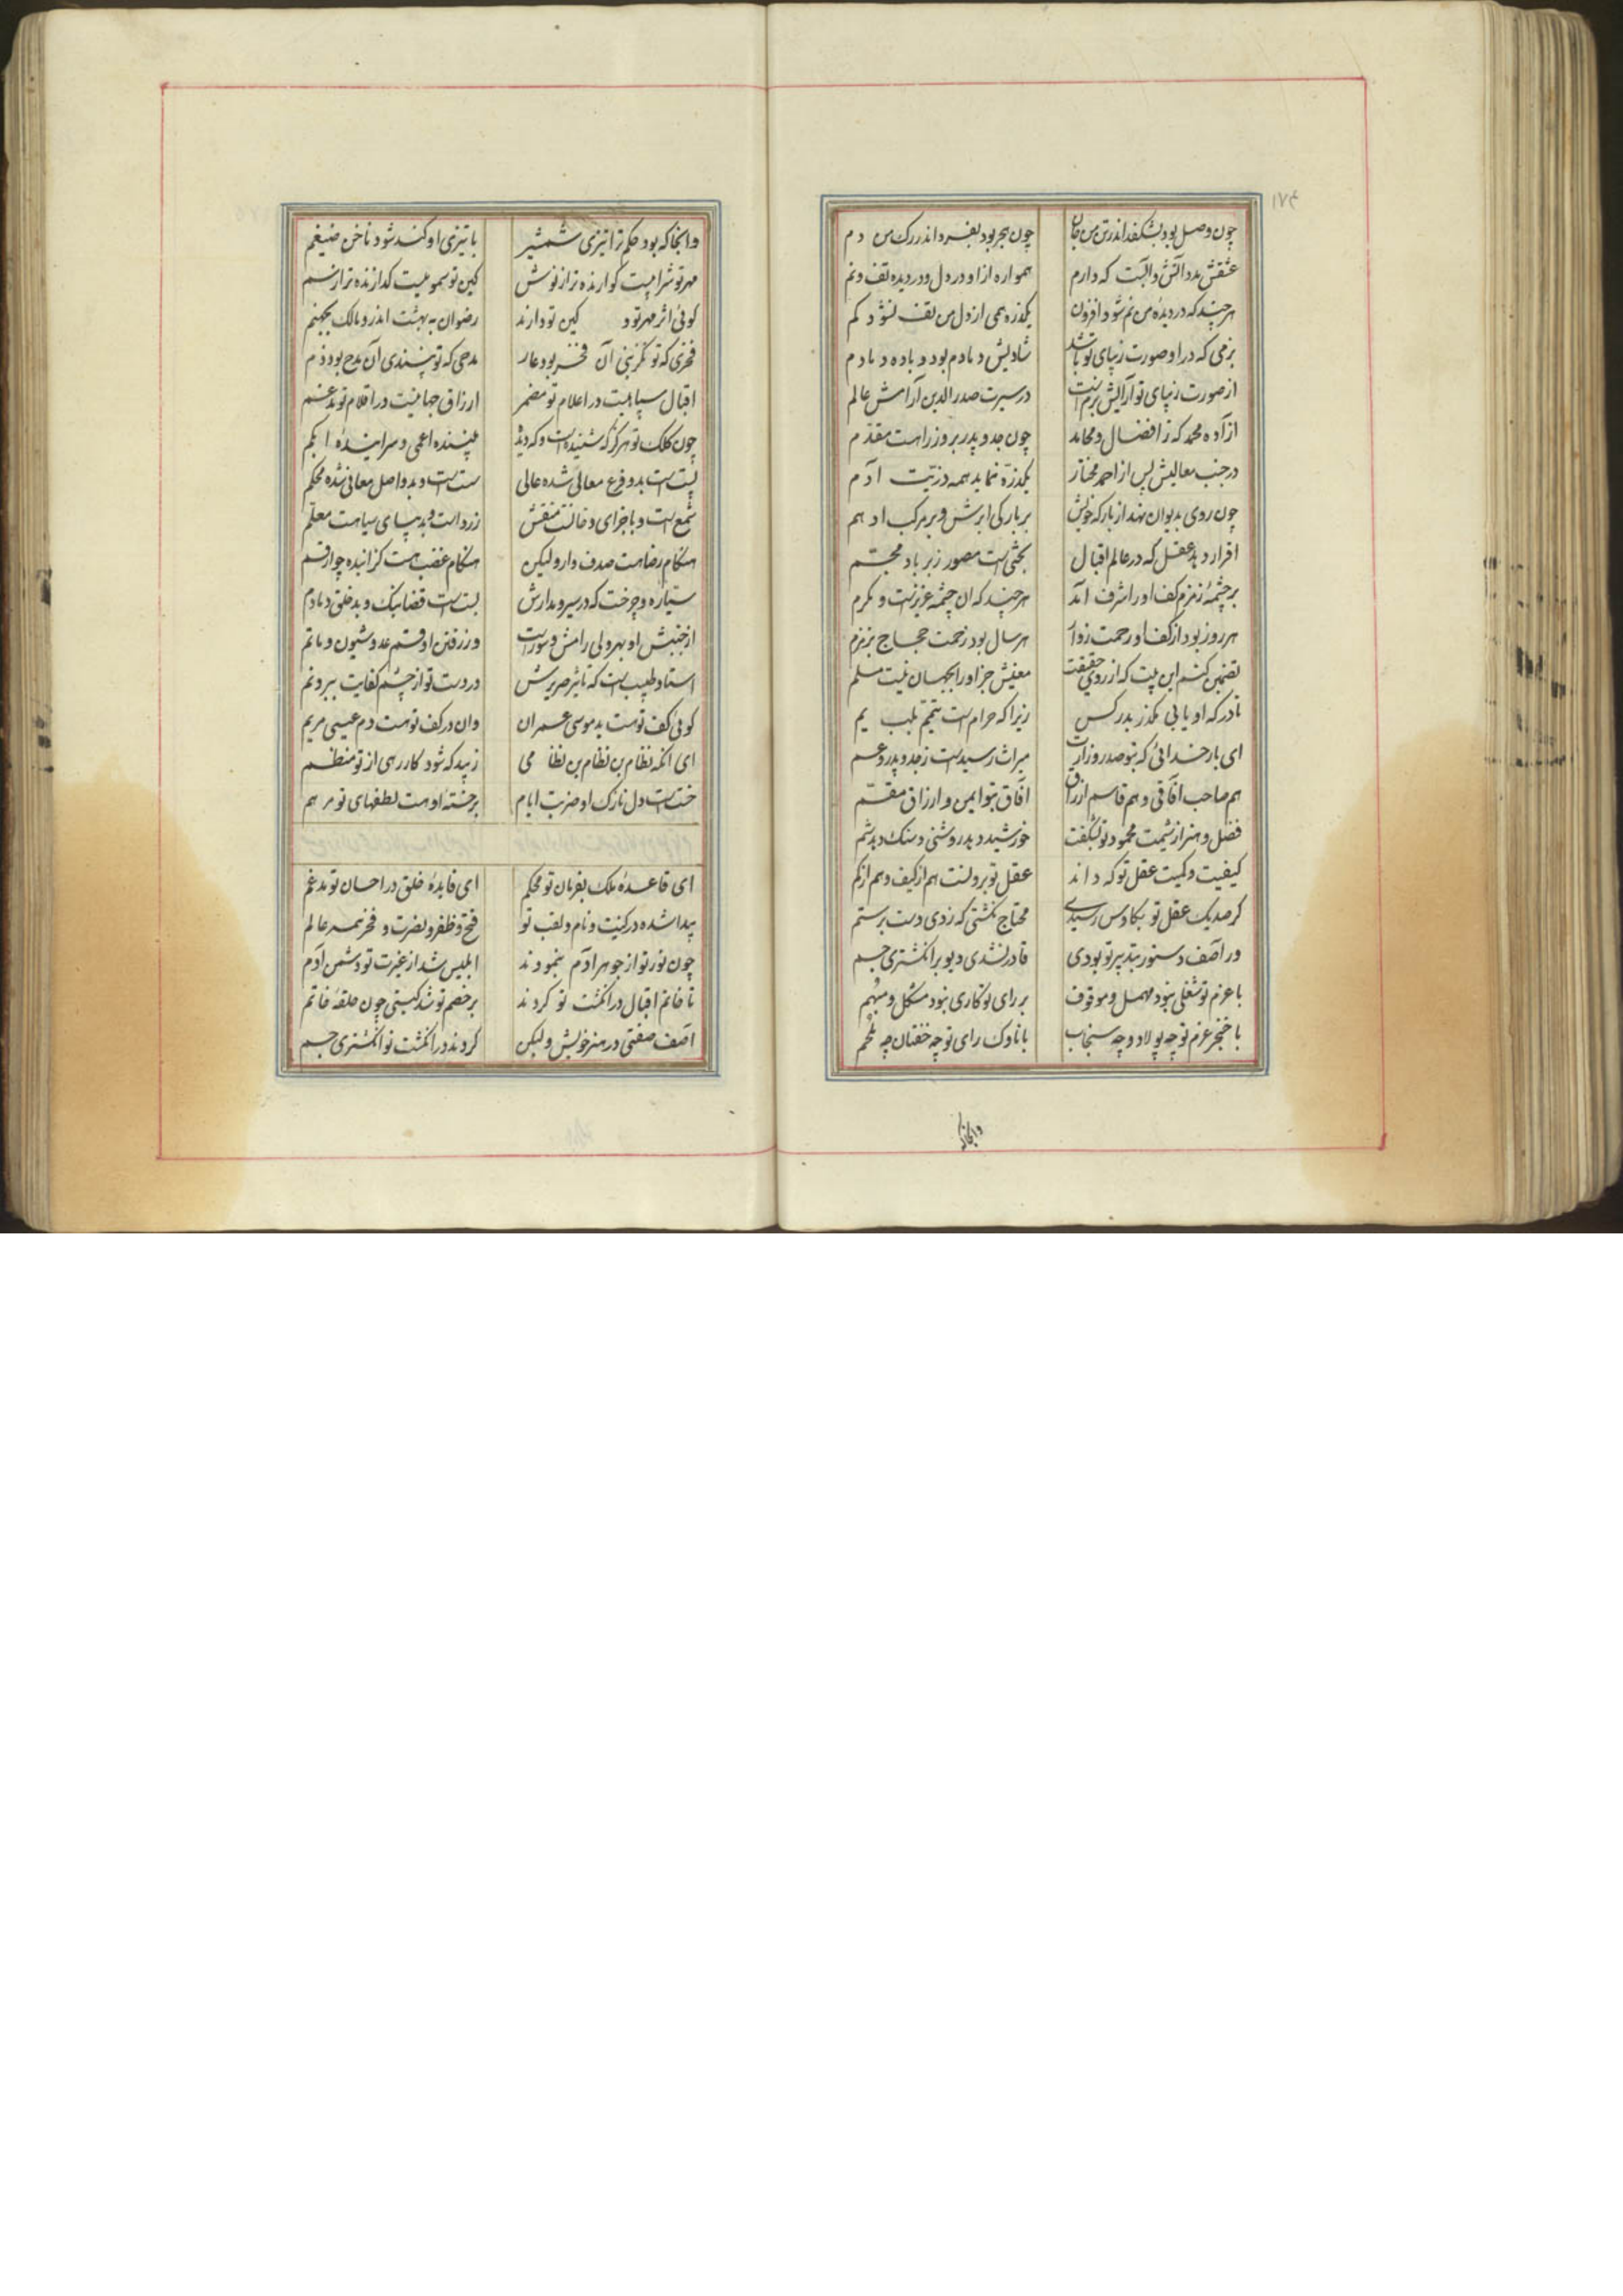 ۱۷۴
چون وصل بود بشکفد اندر تن من جان
چون هجر بود بفسرد اندر رک من دم
عشقش بدد آتش و آبست که دارم
همواره از او در دل و در دیده تف و نم
هر چند که در دیده من نم شود افزون
یکذره همی از دل من تف نشود کم
بزمی که در او صورت زیبای تو باشد
شادیش دمادم بود و باده دمادم
از صورت زیبای تو آرایش بزم است
در سیرت صدرالدین آرامش عالم
آزاده محمد که ز افضال و محامد
چون جد و پدر بر وزرا هست مقدم
در جنب معالیش پس از احمد مختار
یکذره نماید همه ذریت آدم
چون روی بدیوان نهد از بارکه خویش
بر بارکی ابرش و بر مرکب ادهم
اقرار دهد عقل که در عالم اقبال
بختی است مصور زبر باد مجسم
بر چشمه زمزم کف او را شرف آمد
هر چند که ان چشمه عزیزست و مکرم
هر روز بود از کف او رحمت زوار
هر سال بود زحمت حجاج بزمزم
تضمین کنم این بیت که از روی حقیقت
معنیش جز او را بجهان نیست مسلم
تا درکه او یابی مکذر بدر کس
زیرا که حرام است تیمم بلب یم
ای بار خدائی که بتو صدر وزارت
میراث رسیدست ز جد و پدر و عم
هم صاحب آفاقی و هم قاسم ارزاق
آفاق بتو ایمن و ارزاق مقسم
فضل و هنر از شیمت محمود تو بشکفت
خورشید دهد روشنی و مشک دهد شم
کیفیت و کمیت عقل تو که داند
عقل تو برونست هم از کیف و هم از کم
کر صد یک عقل تو بکاوس رسیدی
محتاج نکشتی که زدی دست برستم
ور آصف دستور بتدبیر تو بودی
قادر نشدی دیو بر انکشتری جم
با عزم تو شغلی نبود مهمل و موقوف
بر رای تو کاری نبود مشکل و مبهم
با خنجر عزم تو چه پولاد و چه سنجاب
با ناوک رای تو چه خفتان چه ملحم
وانجا که
وانجا که بود حکم ترا تیزی شمشیر
با تیزی او کند شود ناخن ضیغم
مهر تو شرابیست کوارنده تر از نوش
کین تو سمومیست کدازنده تر از سم
کوئی اثر مهر تو و کین تو دارند
رضوان به بهشت اندر و مالک بجهنم
فخری که تو نکزینی آن فخر بود عار
مدحی که تو نپسندی آن مدح بود ذم
اقبال سپاهیست در اعلام تو مضمر
ارزاق جهانیست در اقلام تو مدغم
چون کلک تو هرکز که شنیده است و که دیده
بیننده اعمی و سراینده ابکم
پست است بدو فرع معالی شده عالی
سست است و بدو اصل معانی شده محکم
شمع است و باجزای دخانست منقش
زر است و بدیبای سیاهست معلم
هنکام رضا هست صدف وار ولیکن
هنکام غضب هست کزاینده چو ارقم
سیاره و چرخست که در سیر و مدارش
بسته است قضا نیک و بد خلق دمادم
از جنبش او بهر ولی رامش و سورست
وز رفتن او قسم عدو شیون و ماتم
استاد طبیب است که تاثیر صریرش
در دست تو از چشم کفایت ببرد نم
کوئی کف تو هست ید موسی عمران
وان در کف تو هست دم عیسی مریم
ای آنکه نظام بن نظام بن نظامی
زیبد که شود کار رهی از تو منظم
خسته است دل نازک او ضربت ایام
بر خسته او هست لطفهای تو مرهم
ای قاعده ملک بفرمان تو محکم
ای فایده خلق در احسان تو مدغم
پیدا شده در کنیت و نام و لقب تو
فتح و ظفر و نصرت و فخر همه عالم
چون نور تو از جوهر آدم بنمودند
ابلیس شد از غیرت تو دشمن آدم
تا خاتم اقبال در انکشت تو کردند
بر خصم تو شد کیتی چون حلقه خاتم
آصف صفتی در هنر خویش ولیکن
کردند در انکشت تو انکشتری جم